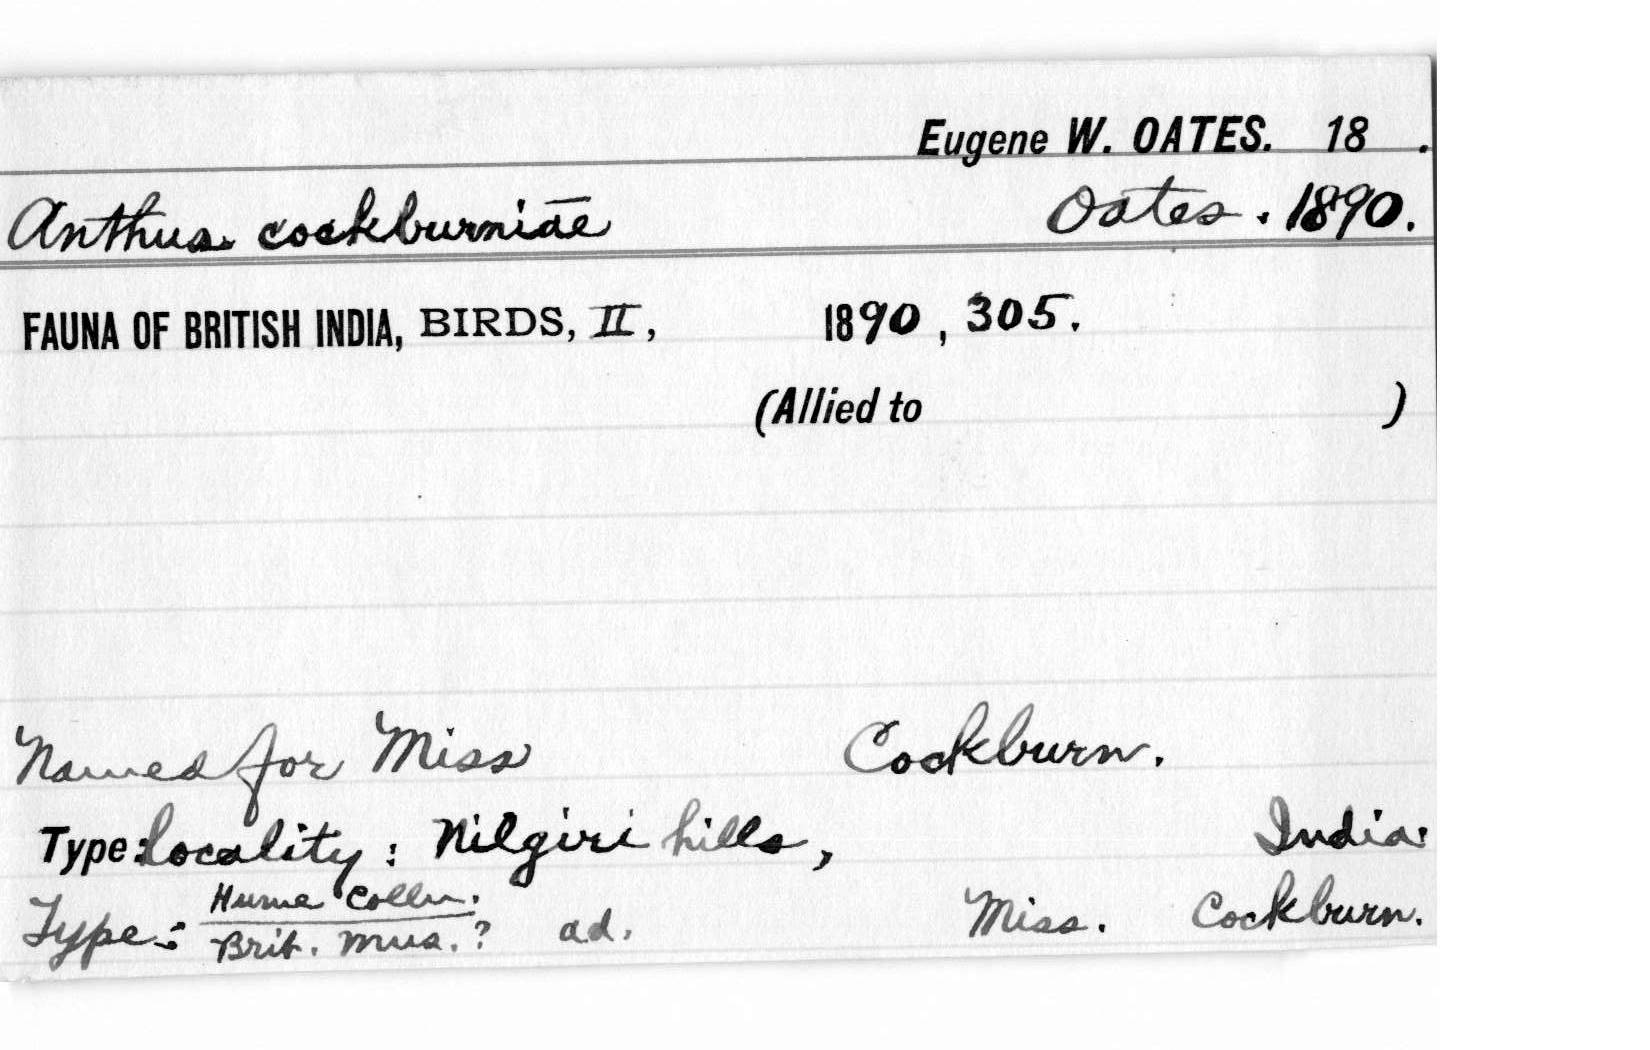 Eugene W. OATES. 18 .
Anthus cockburniae Oates. 1890.
FAUNA OF BRITISH INDIA, BIRDS, II, 1890, 305.
(Allied to )
Named for Miss Cockburn.
Type: locality: Nilgiri hills, India.
Type: Hume Colln.
Brit. Mus. ? ad. Miss. Cockburn.